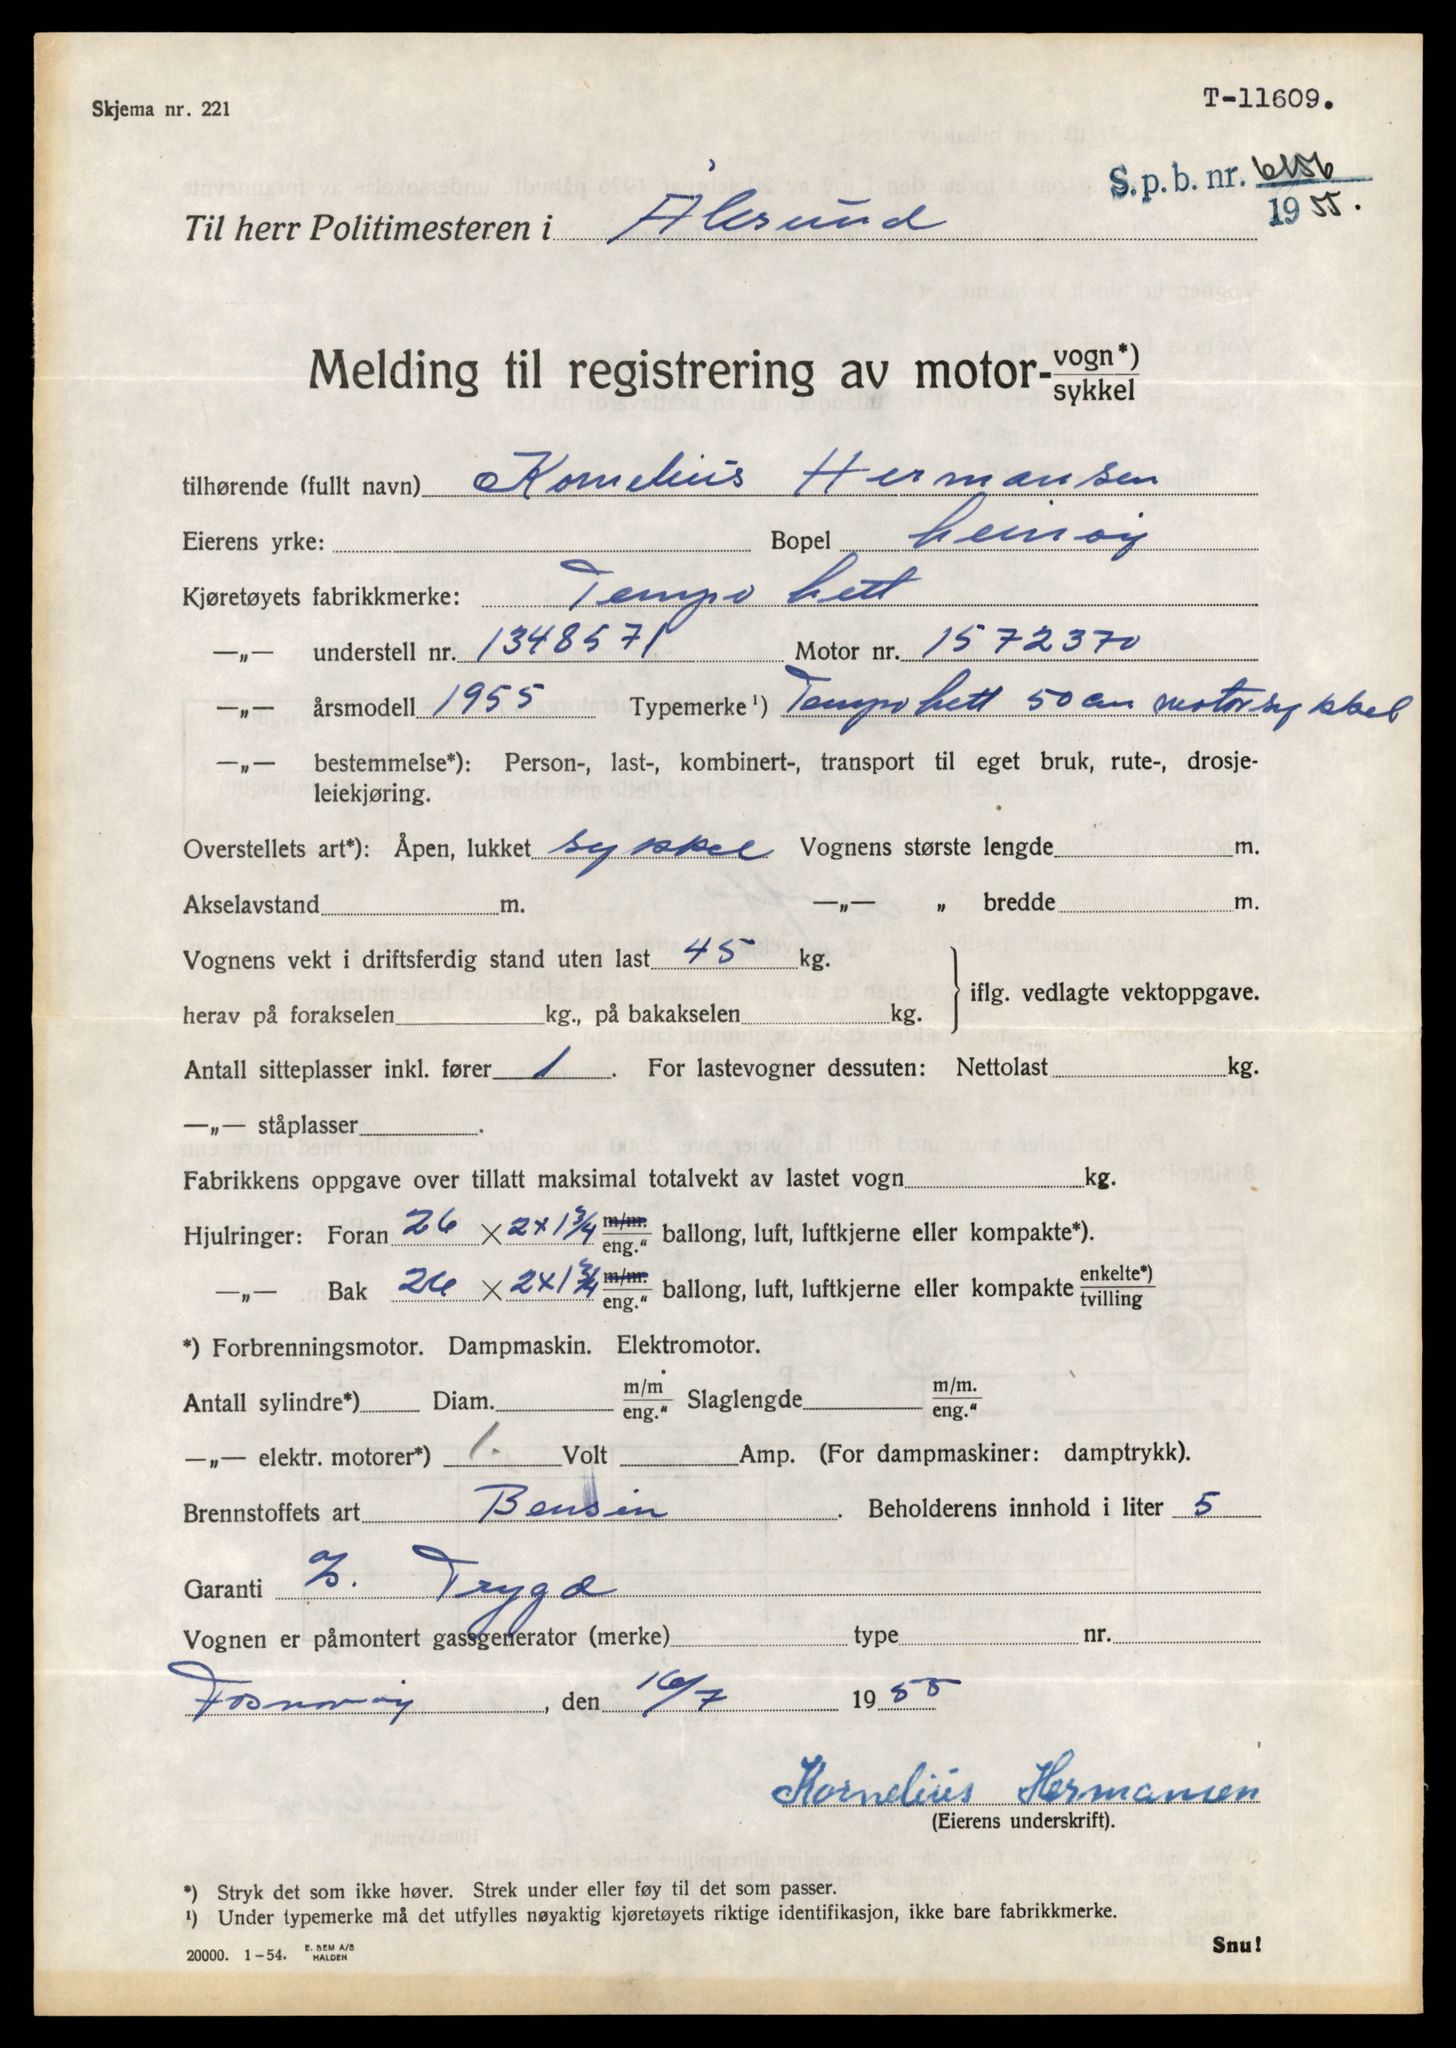 Skjema nr. 221
T-11609.
S.p.b. nr. 6156
1955.
Til herr Politimesteren i Ålesund
Melding til registrering av motor- vogn*) sykkel
tilhørende (fullt navn) Kornelius Hermansen
Eierens yrke: Bopel Leinøy
Kjøretøyets fabrikkmerke: Tempo Lett
—„— understell nr. 1348571 Motor nr. 1572370
—„— årsmodell 1955 Typemerke¹) Tempo lett 50 cm motorsykkel
—„— bestemmelse*): Person-, last-, kombinert-, transport til eget bruk, rute-, drosje-
leiekjøring.
Overstellets art*): Åpen, lukket sykkel Vognens største lengde m.
Akselavstand m. —„— „ bredde m.
Vognens vekt i driftsferdig stand uten last 45 kg.
iflg. vedlagte vektoppgave.
herav på forakselen kg., på bakakselen kg.
Antall sitteplasser inkl. fører 1 . For lastevogner dessuten: Nettolast kg.
—„— ståplasser .
Fabrikkens oppgave over tillatt maksimal totalvekt av lastet vogn kg.
Hjulringer: Foran 26 × 2x1 3/4 m/m. eng." ballong, luft, luftkjerne eller kompakte*).
—„— Bak 26 × 2x1 3/4 m/m. eng." ballong, luft, luftkjerne eller kompakte enkelte*) tvilling
*) Forbrenningsmotor. Dampmaskin. Elektromotor.
Antall sylindre*) Diam. m/m eng." Slaglengde m/m. eng."
—„— elektr. motorer*) 1. Volt Amp. (For dampmaskiner: damptrykk).
Brennstoffets art Bensin . Beholderens innhold i liter 5
Garanti Trygd
Vognen er påmontert gassgenerator (merke) type nr.
Fosnavåg, den 16/7 1955
Kornelius Hermansen
(Eierens underskrift).
*) Stryk det som ikke høver. Strek under eller føy til det som passer.
¹) Under typemerke må det utfylles nøyaktig kjøretøyets riktige identifikasjon, ikke bare fabrikkmerke.
20000. 1-54. E. SEM A/S HALDEN
Snu!